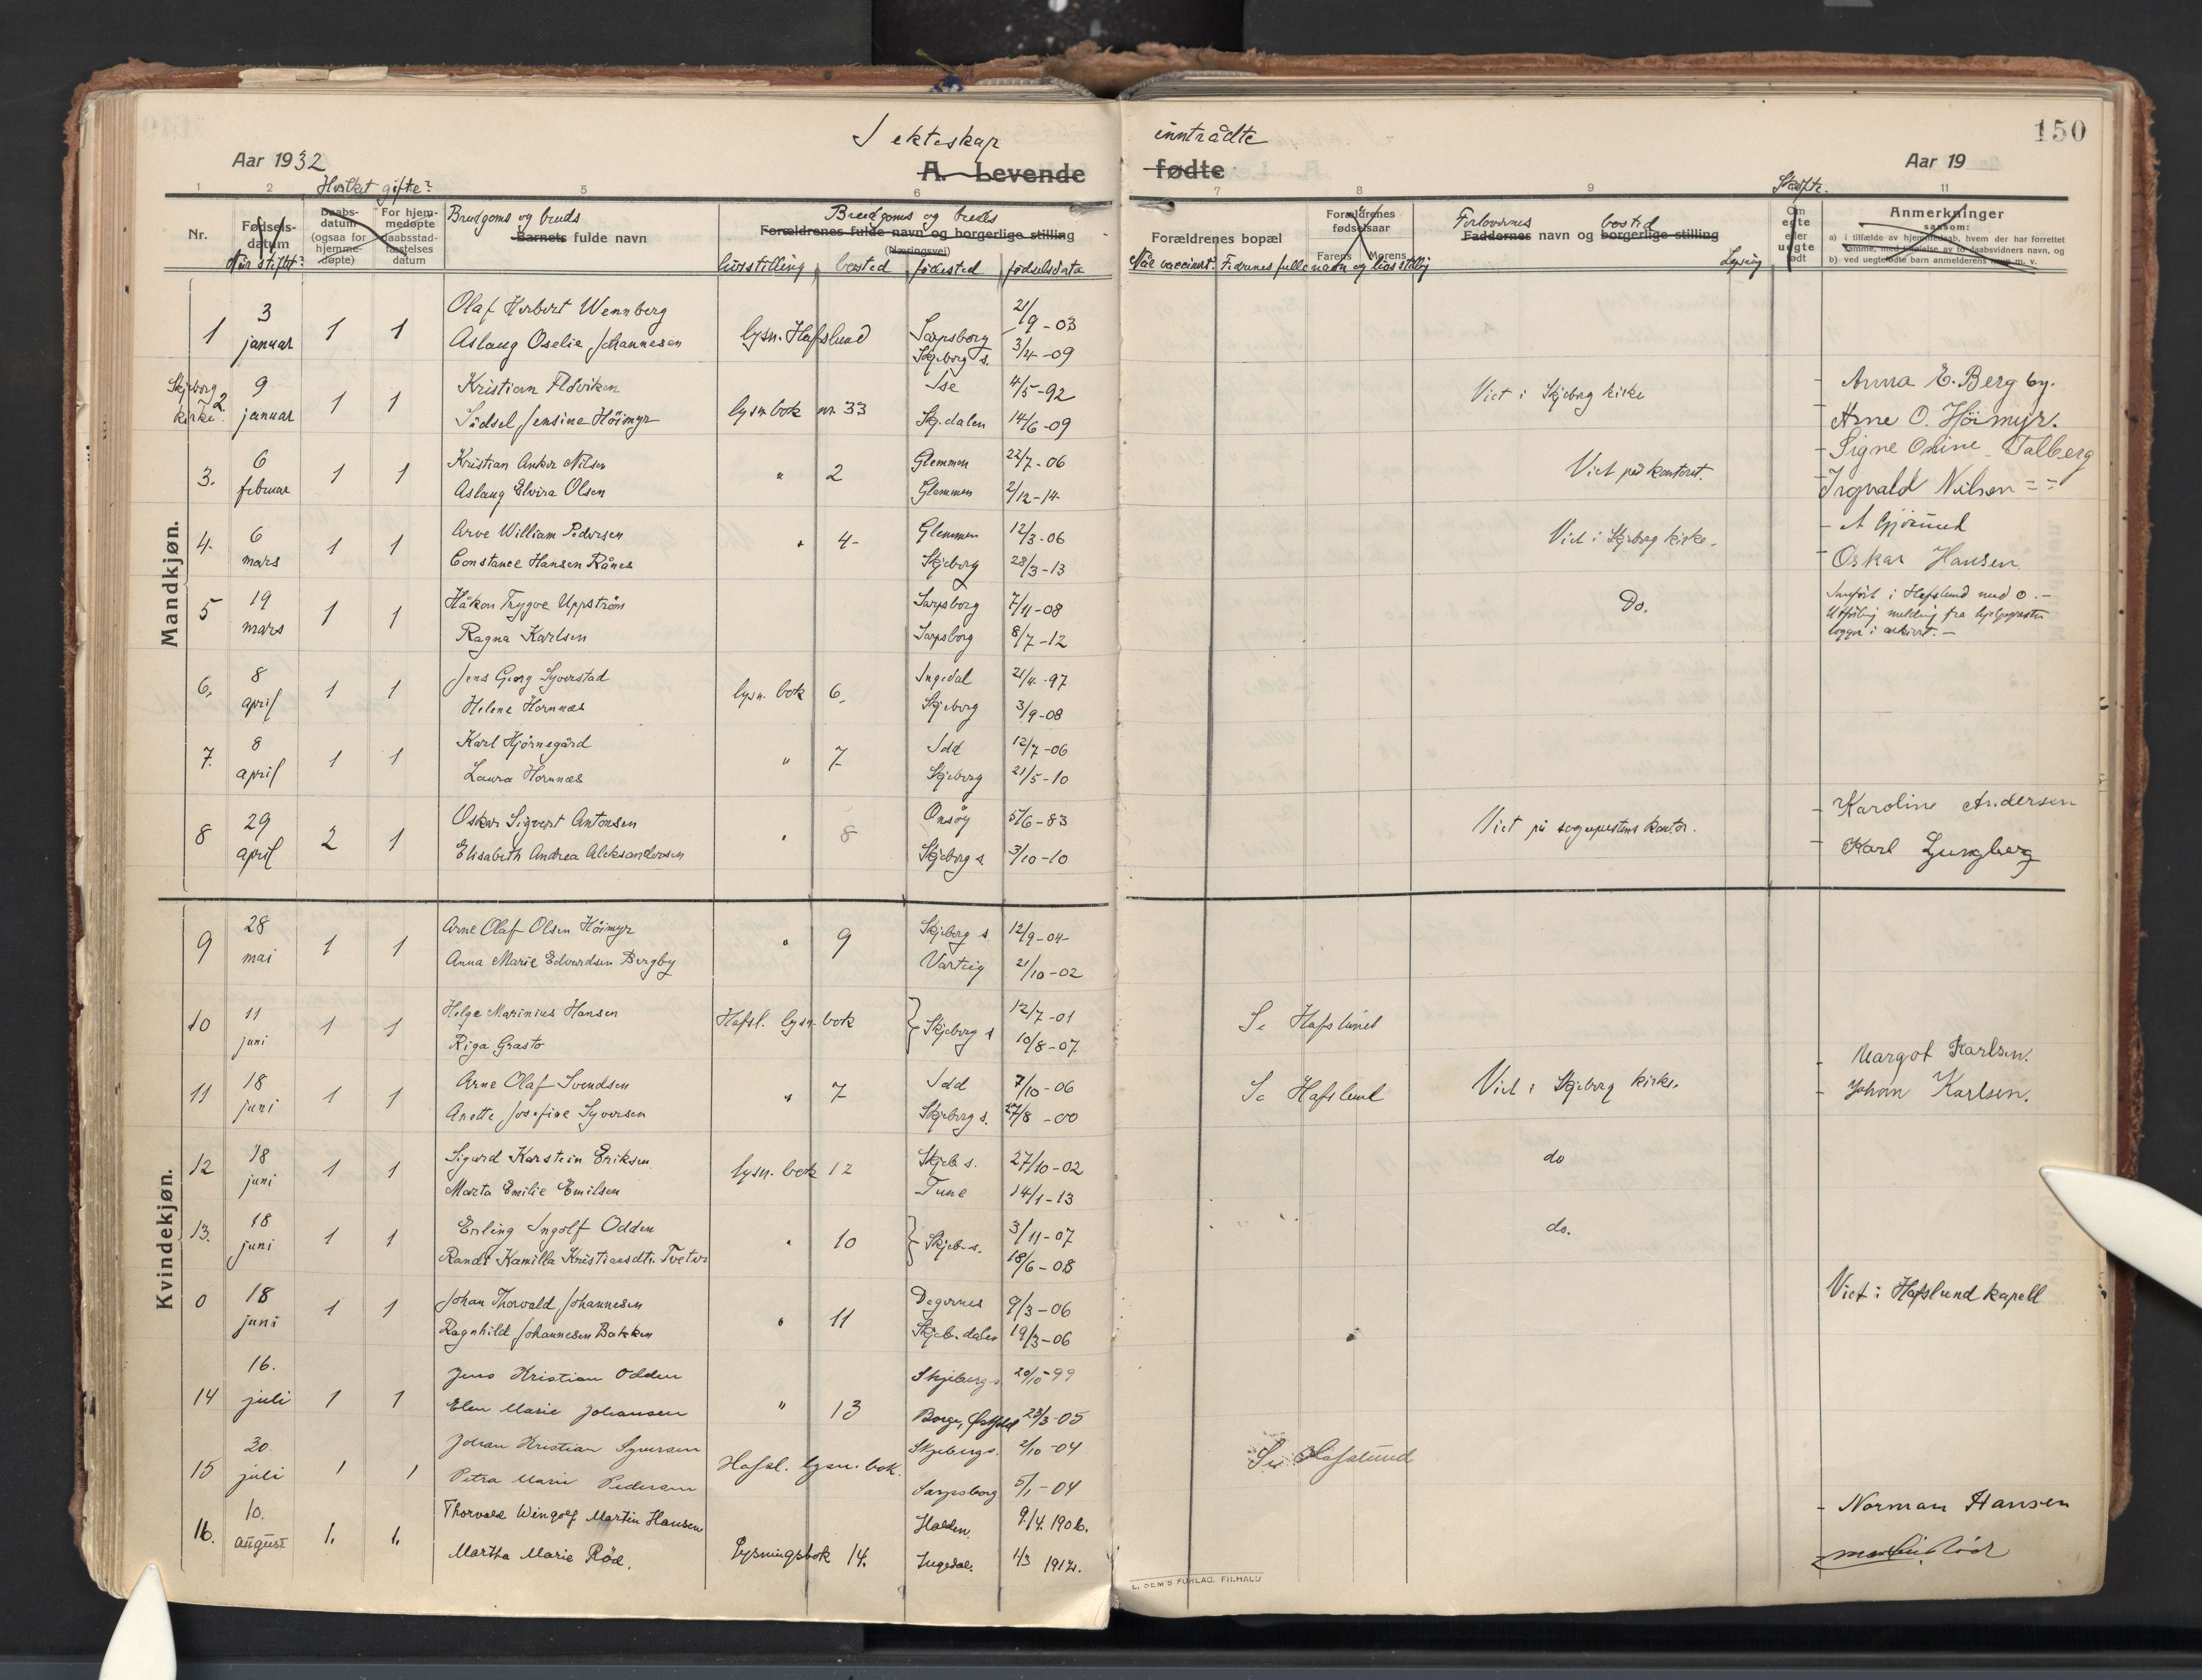 I ekteskap inntrådte
150
Aar 1932
A. Levende fødte
Aar 19
Hvilket gifte?
Skifte.
1 2 5 6 7 8 9 11
Nr.
Fødsels-datum
Når stiftet?
Daabs-datum (ogsaa for hjemme-døpte)
For hjem-medøpte daabsstad-fæstelses datum
Brudgoms og bruds
Barnets fulde navn
Brudgoms og bruds
Forældrenes fulde navn og borgerlige stilling
(Næringsvei)
livsstilling bosted fødested fødselsdata
Forældrenes bopæl
Når vaccinert. Fedrenes fulle navn og livsstilling
Forældrenes fødselsaar
Farens Morens
Forlovernes bosted
Faddernes navn og borgerlige stilling
Lysning
Om egte eller uegte født
Anmerkninger
saasom:
a) i tilfælde av hjemmedaab, hvem der har forrettet samme, med tilføielse av to daabsvidners navn, og
b) ved uegtefødte barn anmelderens navn m. v.
Mandkjøn.
1 3 januar 1 1 Olaf Herbert Wennberg lysn. Hafslund Sarpsborg 21/9-03
Aslaug Oselie Johannesen Skjeberg s. 3/4-09
Skjeberg kirke 2. 9 januar 1 1 Kristian Flåviken lysn. bok nr. 33 Ise 4/5-92 Viet i Skjeberg kirke - Anna E. Bergby.
Sidsel Jensine Höimyr Skj.dalen 14/6-09 - Arne O. Höimyr.
3. 6 februar 1 1 Kristian Anker Nilsen " 2 Glemmen 22/7-06 Viet på kontoret. - Signe Osine Talberg
Aslaug Elvira Olsen Glemmen 2/12-14 - Ingvald Nilsen
4. 6 mars 1 1 Arve William Pedersen " 4- Glemmen 12/3-06 Viet i Skjeberg kirke. - A Gjösund
Constance Hansen Rånes Skjeberg 28/3-13 - Oskar Hansen
5 19 mars 1 1 Håkon Trygve Uppström Sarpsborg 7/11-08 Do. Innført i Hafslund med 0. -
Ragna Karlsen Sarpsborg 8/7-12 melding fra hjelpepresten
ligger i arkivet. -
6. 8 april 1 1 Jens Georg Syverstad lysn. bok 6. Ingedal 21/4-97
Helene Hornnæs Skjeberg 3/9-08
7. 8 april 1 1 Karl Hjörnegård " 7 Idd 12/7-06
Laura Hornnæs Skjeberg 21/5-10
8 29 april 2 1 Oskar Sigvert Antonsen " 8 Onsöy 5/6-83 Viet på sogneprestens kontor. - Karoline Andersen
Elisabeth Andrea Aleksandersen Skjeberg s. 3/10-10 - Karl Ljungberg
Kvindekjøn.
9 28 mai 1 1 Arne Olaf Olsen Höimyr " 9 Skjeberg s 12/9-04
Anna Marie Edvardsen Bergby Varteig 21/10-02
10 11 juni 1 1 Helge Marinius Hansen Hafsl. lysn. bok Skjeberg s 12/7-01 Se Hafslund
Riga Grasto 10/8-07
11 18 juni 1 1 Arne Olaf Svendsen " 7 Idd 7/10-06 Se Hafslund Viet i Skjeberg kirke. - Margot Karlsen.
Anette Josefine Syversen Skjeberg s. 27/8-00 - Johan Karlsen.
12 18 juni 1 1 Sigurd Karstein Eriksen lysn. bok 12 Skjeb s. 27/10-02 do
Marta Emilie Emilsen Tune 14/1-13
13. 18 juni 1 1 Erling Ingolf Odden " 10 Skjeb. s. 3/11-07 do.
Randi Kamilla Kristiansdtr. Tveter 18/6-08
0 18 juni 1 1 Johan Thorvald Johannesen " 11 Degernes 9/3-06 Viet i Hafslund kapell
Ragnhild Johannesen Bakken Skjeb. dalen 19/3-06
14 16. juli 1 1 Jens Kristian Odden " 13 Skjeberg s 20/10-99
Elen Marie Johansen Borge, Østfold 23/3-05
15 30. juli 1 1 Johan Kristian Syversen Hafsl. lysn. bok. Skjeberg s. 2/10-04 Se Hafslund
Petra Marie Pedersen Sarpsborg 5/1-04
16. 10. august 1. 1. Thorvald Wingolf Martin Hansen Lysningsbok 14. Halden. 9/4.1906. - Norman Hansen
Martha Marie Röd. Ingedal. 1/3 1912.
E. SEM'S FORLAG, FR.HALD